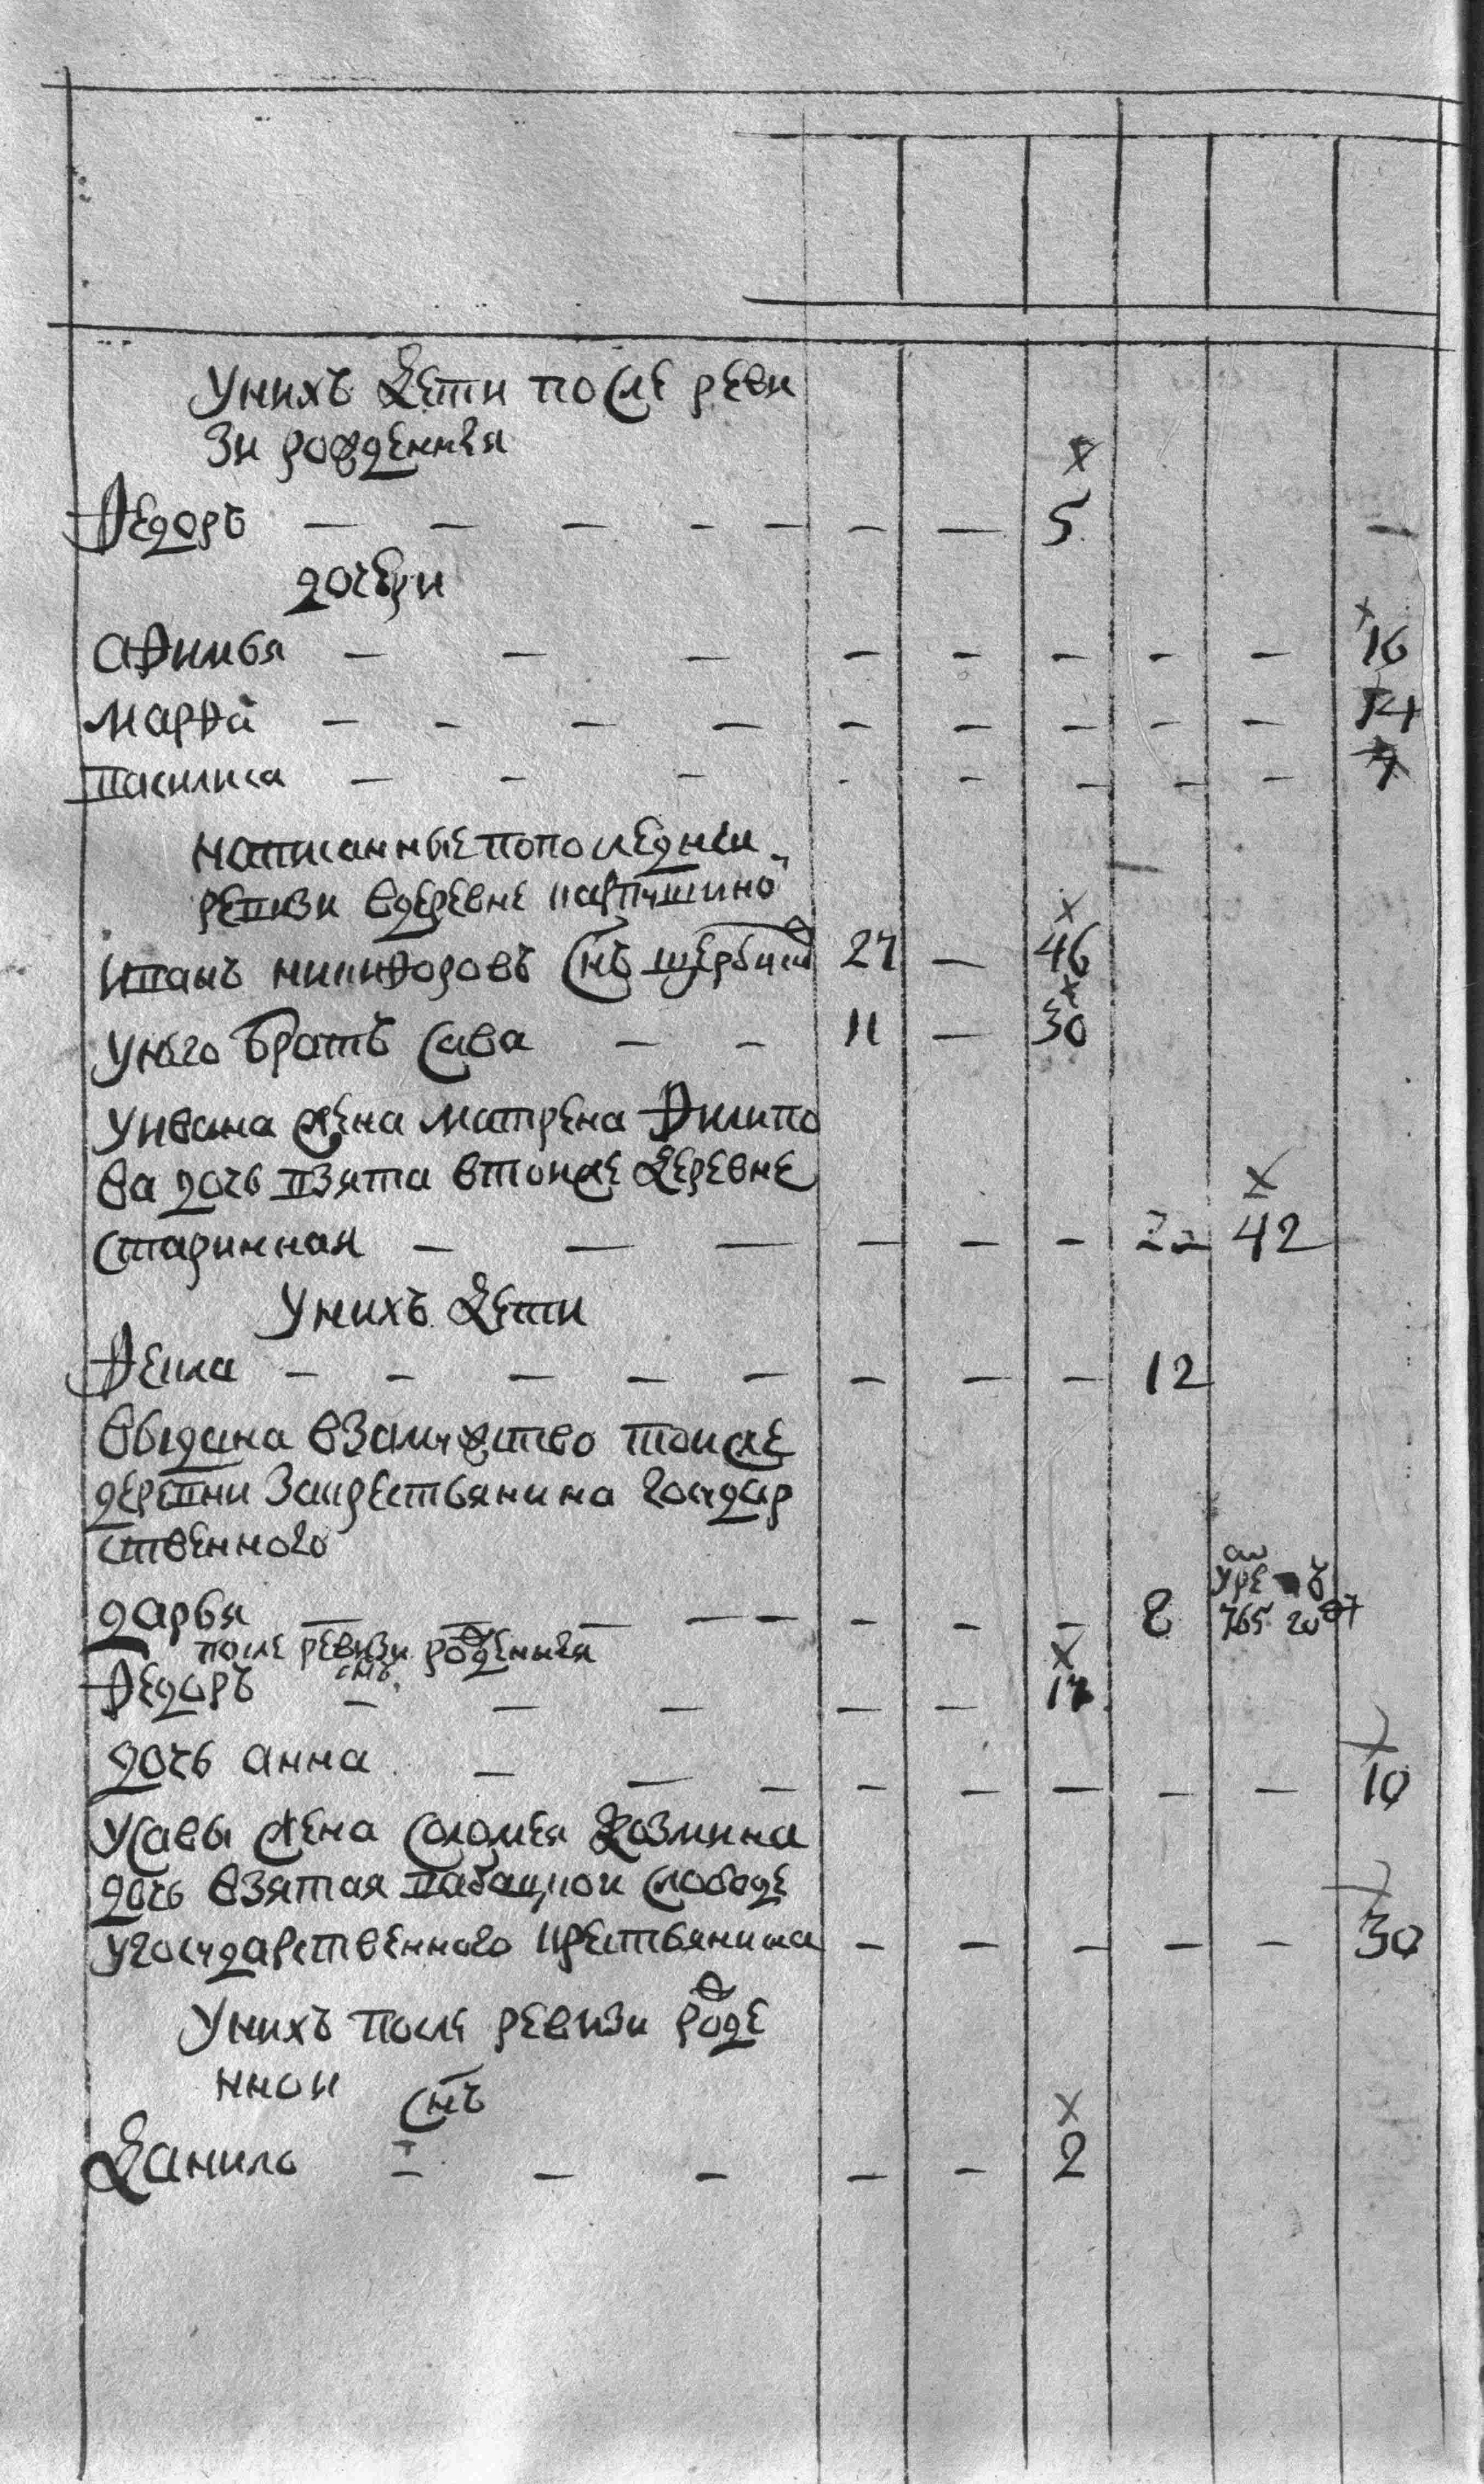 У нихъ дети после реви
зи рожденныя
Федоръ — — — — — — — 5 —
дочери
Афимья — — — — — — — — 16
марфа — — — — — — — — — 14
василиса — — — — — — — — 7
написанные попоследнеи
ревизи вдеревне
иванъ никифоровъ снъ щербаков 27 — 46
унего братъ сава — — 11 — 30
уивана жена матрена Филипо
ва дочь взята втоиже деревне
старинная — — — — — — 22 42
У нихъ дети
Фекла — — — — — — — — 12
выдана взамужство тоиже
деревни закрестьянина государ
ственного
дарья — — — — — — — — 8 уме ъ 765 го
после ревизи рожденныя
Федоръ снъ — — — — — 17
дочь анна — — — — — — — — 10
Усавы жена соломея козмина
дочь взятая вабацкои слободе
угосударственного крестьянина — — — — — 30
У нихъ после ревизи рожде
ннои снъ
Данило — — — — — 2